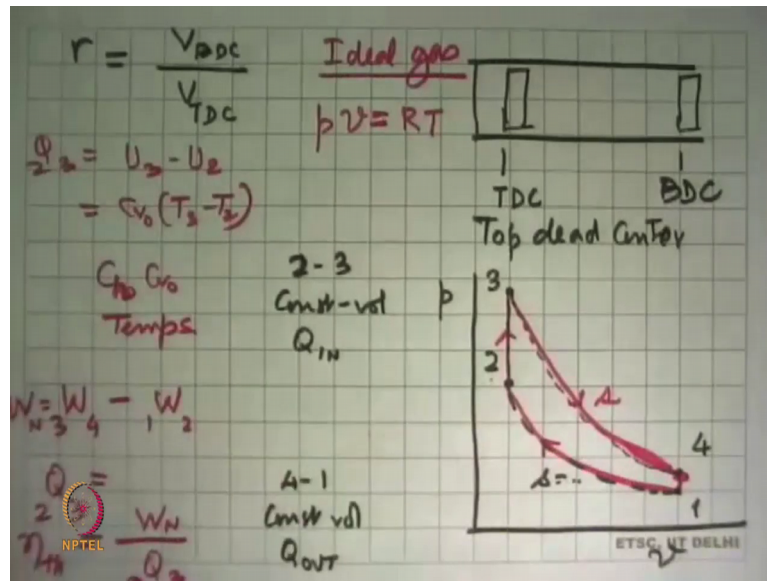 r = V_BDC / V_TDC
Ideal gas
p v = RT
TDC
BDC
Top dead Center
₂Q₃ = U₃ - U₂
= Cv₀ (T₃ - T₂)
Cp₀ Cv₀
Temps
2-3
Const-vol
Q_IN
p
3
2
s
4
s = -
1
v
W_N = ₃W₄ - ₁W₂
₂Q =
4-1
Const vol
Q_OUT
η_th = W_N / ₂Q₃
NPTEL
ETSC, IIT DELHI